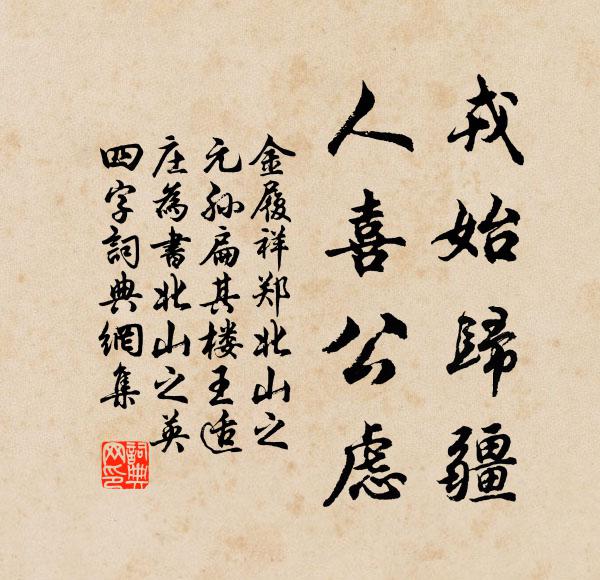 戎始歸疆
人喜公慮
金履祥郑北山之
元孙扁其楼王适
庄為書北山之英
四字詞典網集
詞典
网印